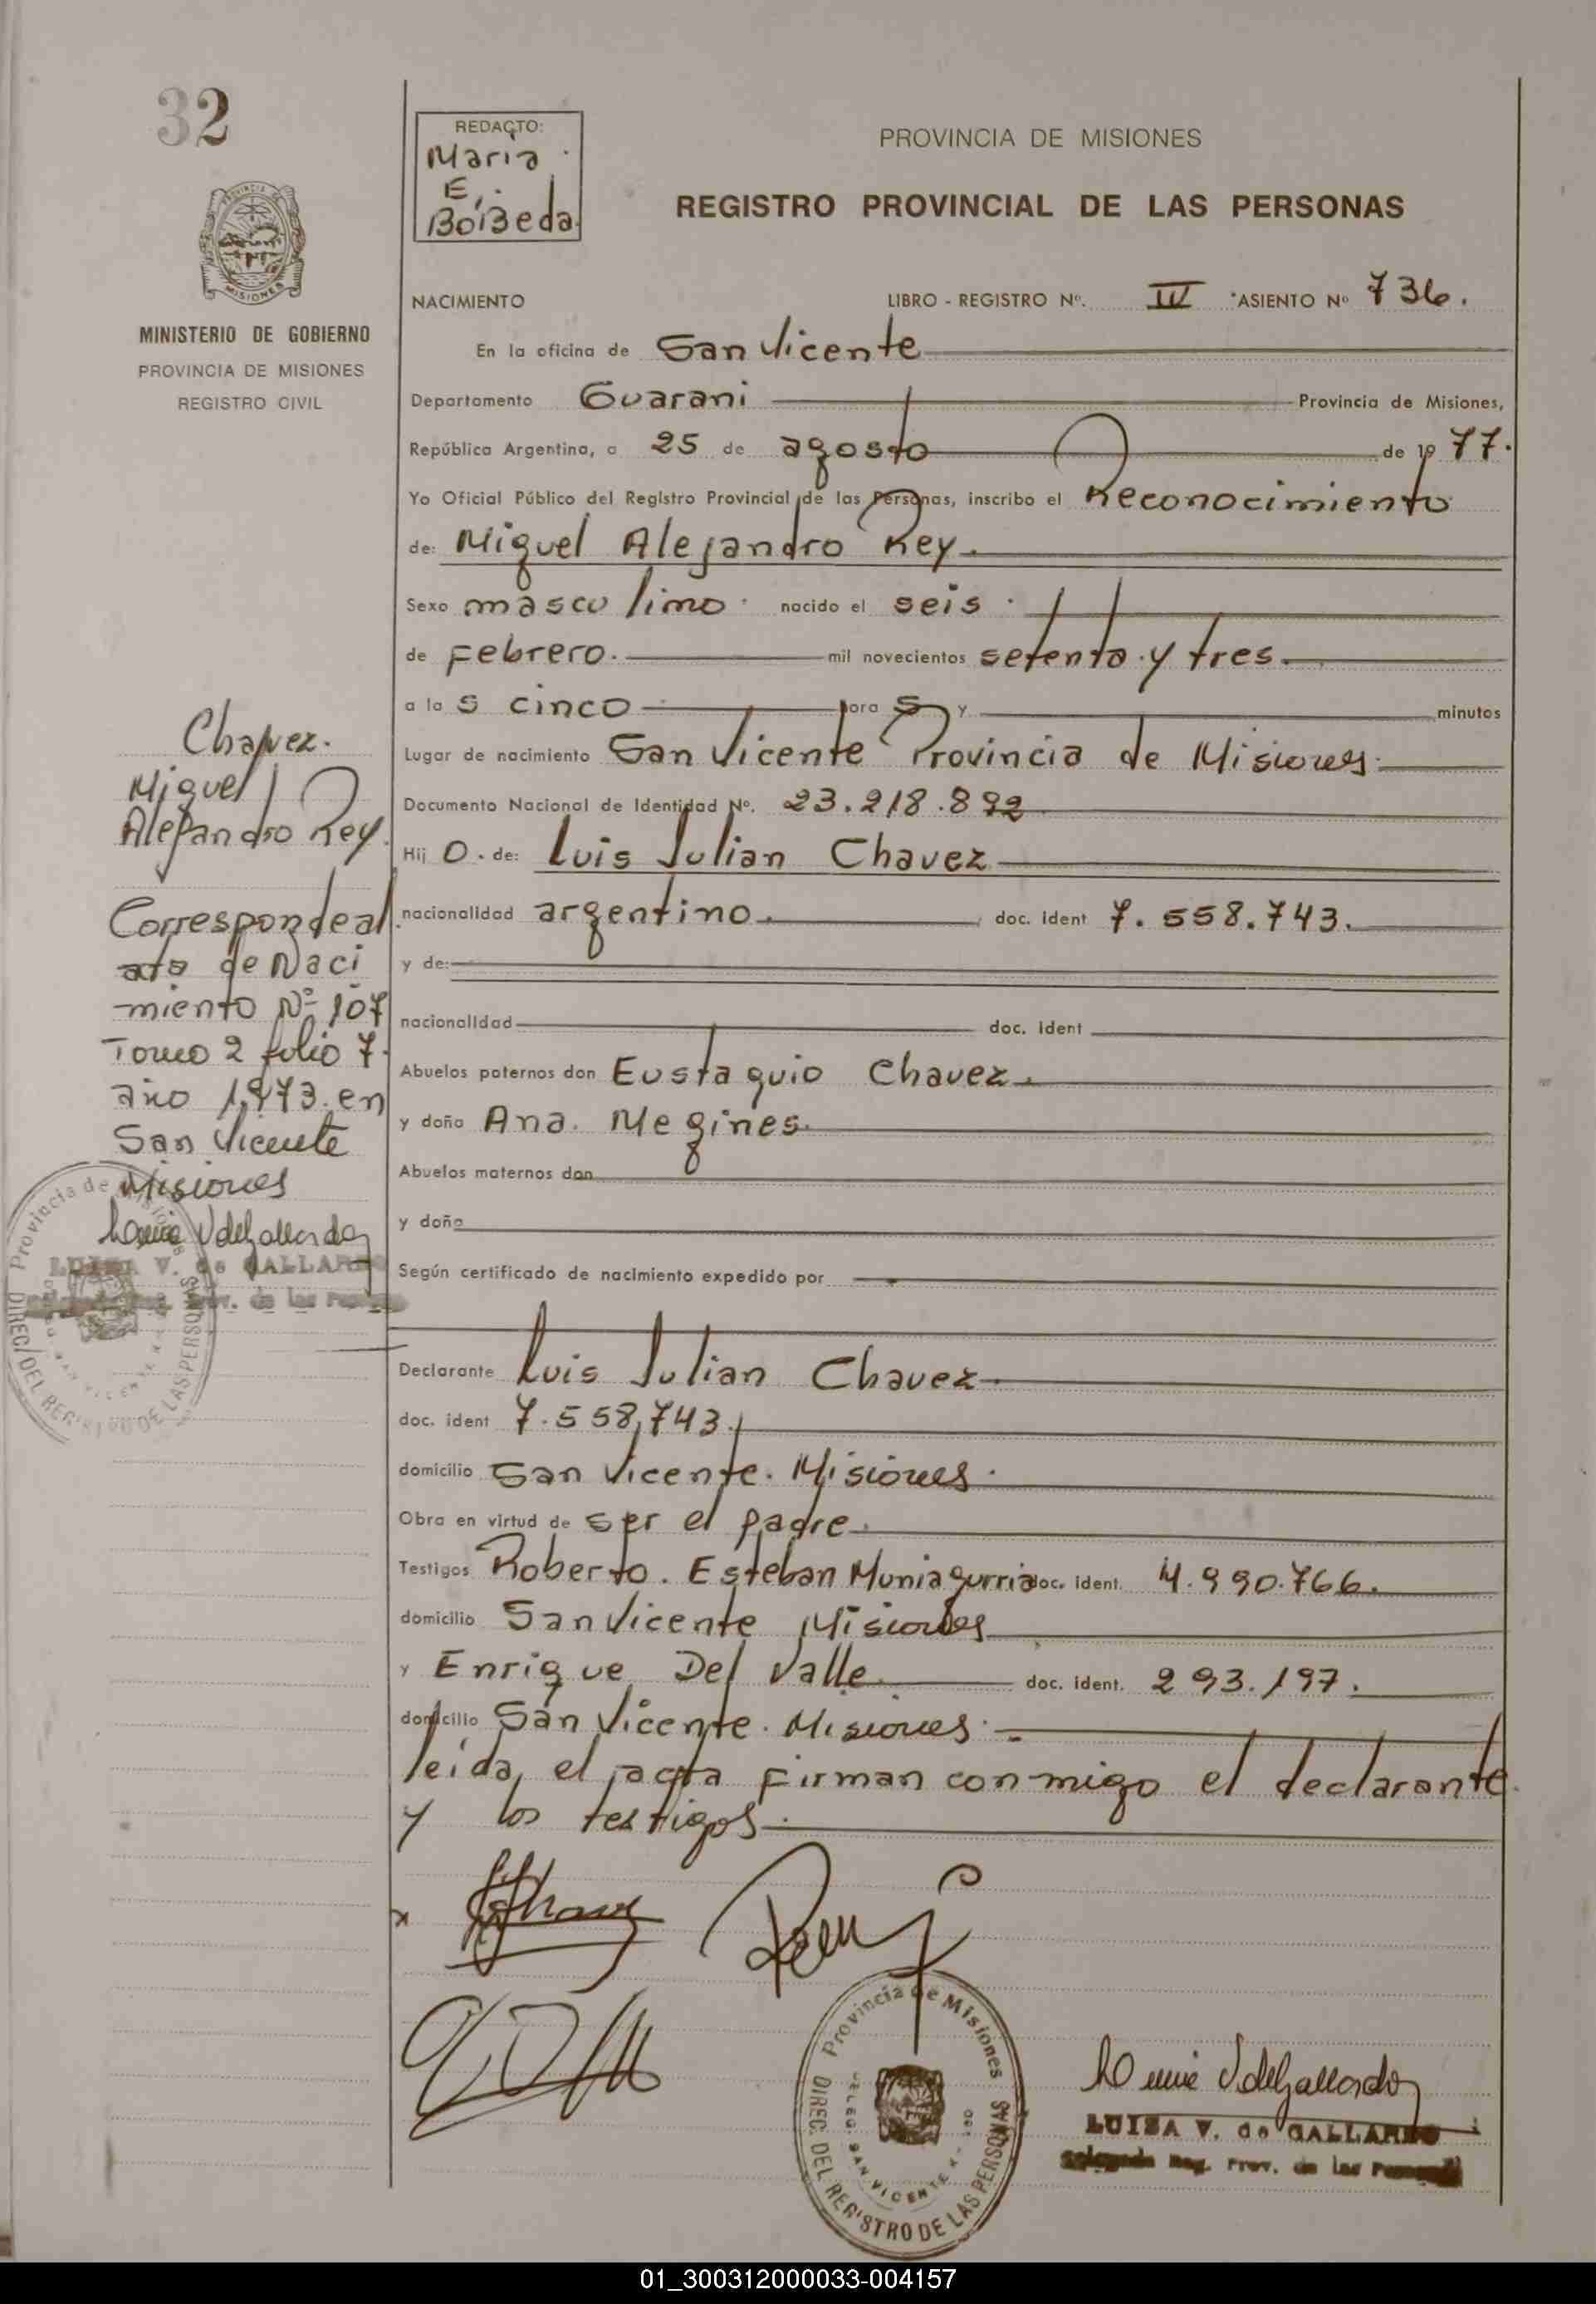 32
REDACTO:
Maria
E.
BoiBeda
PROVINCIA DE MISIONES
REGISTRO PROVINCIAL DE LAS PERSONAS
MISIONES
MINISTERIO DE GOBIERNO
PROVINCIA DE MISIONES
REGISTRO CIVIL
NACIMIENTO LIBRO - REGISTRO Nº. IV ASIENTO Nº 736.
En la oficina de San Vicente
Departamento Guarani Provincia de Misiones,
República Argentina, a 25 de agosto de 19 77.
Yo Oficial Público del Registro Provincial de las Personas, inscribo el Reconocimiento
de: Miguel Alejandro Rey.
Sexo masculino. nacido el seis.
de Febrero. mil novecientos setenta y tres.
a la s cinco hora s y minutos
Lugar de nacimiento San Vicente Provincia de Misiones.
Documento Nacional de Identidad Nº. 23.218.892
Hij o. de: Luis Julian Chavez
nacionalidad argentino. doc. ident 7.558.743.
y de:
nacionalidad doc. ident
Abuelos paternos don Eustaquio Chavez.
y doña Ana. Megines.
Abuelos maternos don
y doña
Según certificado de nacimiento expedido por
Declarante Luis Julian Chavez
doc. ident 7.558,743.
domicilio San Vicente. Misiones.
Obra en virtud de ser el padre.
Testigos Roberto. Esteban Muniagurria doc. ident. 4.990.766.
domicilio San Vicente Misiones
y Enrique Del Valle doc. ident. 293.197.
domicilio San Vicente. Misiones.
leida, el acta Firman conmigo el declarante.
y los testigos.
Chavez.
Miguel
Alejandro Rey.
Corresponde al
acta de Naci
miento Nº 107
Tomo 2 folio 7.
año 1.973. en
San Vicente
Misiones
LUISA V. de GALLARDO
Provincia de Misiones
DIREC. DEL REGISTRO DE LAS PERSONAS
Provincia de Misiones
DIREC. DEL REGISTRO DE LAS PERSONAS
DELEG. SAN VICENTE
LUISA V. de GALLARDO
Reg. Prov. de las Personas
01_300312000033-004157